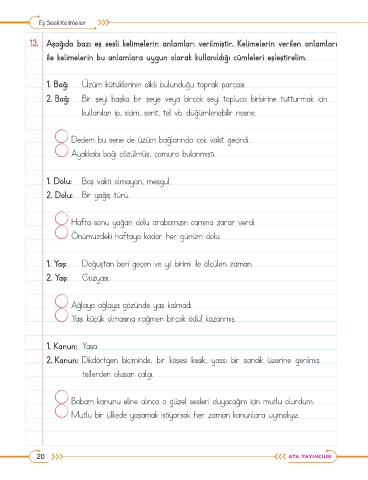 Eş Sesli Kelimeler
13. Aşağıda bazı eş sesli kelimelerin anlamları verilmiştir. Kelimelerin verilen anlamları
ile kelimelerin bu anlamlara uygun olarak kullanıldığı cümleleri eşleştirelim.
1. Bağ: Üzüm kütüklerinin dikili bulunduğu toprak parçası.
2. Bağ: Bir şeyi başka bir şeye veya birçok şeyi topluca birbirine tutturmak için
kullanılan ip, sicim, şerit, tel vb. düğümlenebilir nesne.
Dedem bu sene de üzüm bağlarında çok vakit geçirdi.
Ayakkabı bağı çözülmüş, çamura bulanmıştı.
1. Dolu: Boş vakti olmayan, meşgul.
2. Dolu: Bir yağış türü.
Hafta sonu yağan dolu arabamızın camına zarar verdi.
Önümüzdeki haftaya kadar her günüm dolu.
1. Yaş: Doğuştan beri geçen ve yıl birimi ile ölçülen zaman.
2. Yaş: Gözyaşı.
Ağlaya ağlaya gözünde yaş kalmadı.
Yaşı küçük olmasına rağmen birçok ödül kazanmış.
1. Kanun: Yasa.
2. Kanun: Dikdörtgen biçiminde, bir köşesi kesik, yassı bir sandık üzerine gerilmiş
tellerden oluşan çalgı.
Babam kanunu eline alınca o güzel sesleri duyacağım için mutlu olurdum.
Mutlu bir ülkede yaşamak istiyorsak her zaman kanunlara uymalıyız.
20
ATA YAYINCILIK